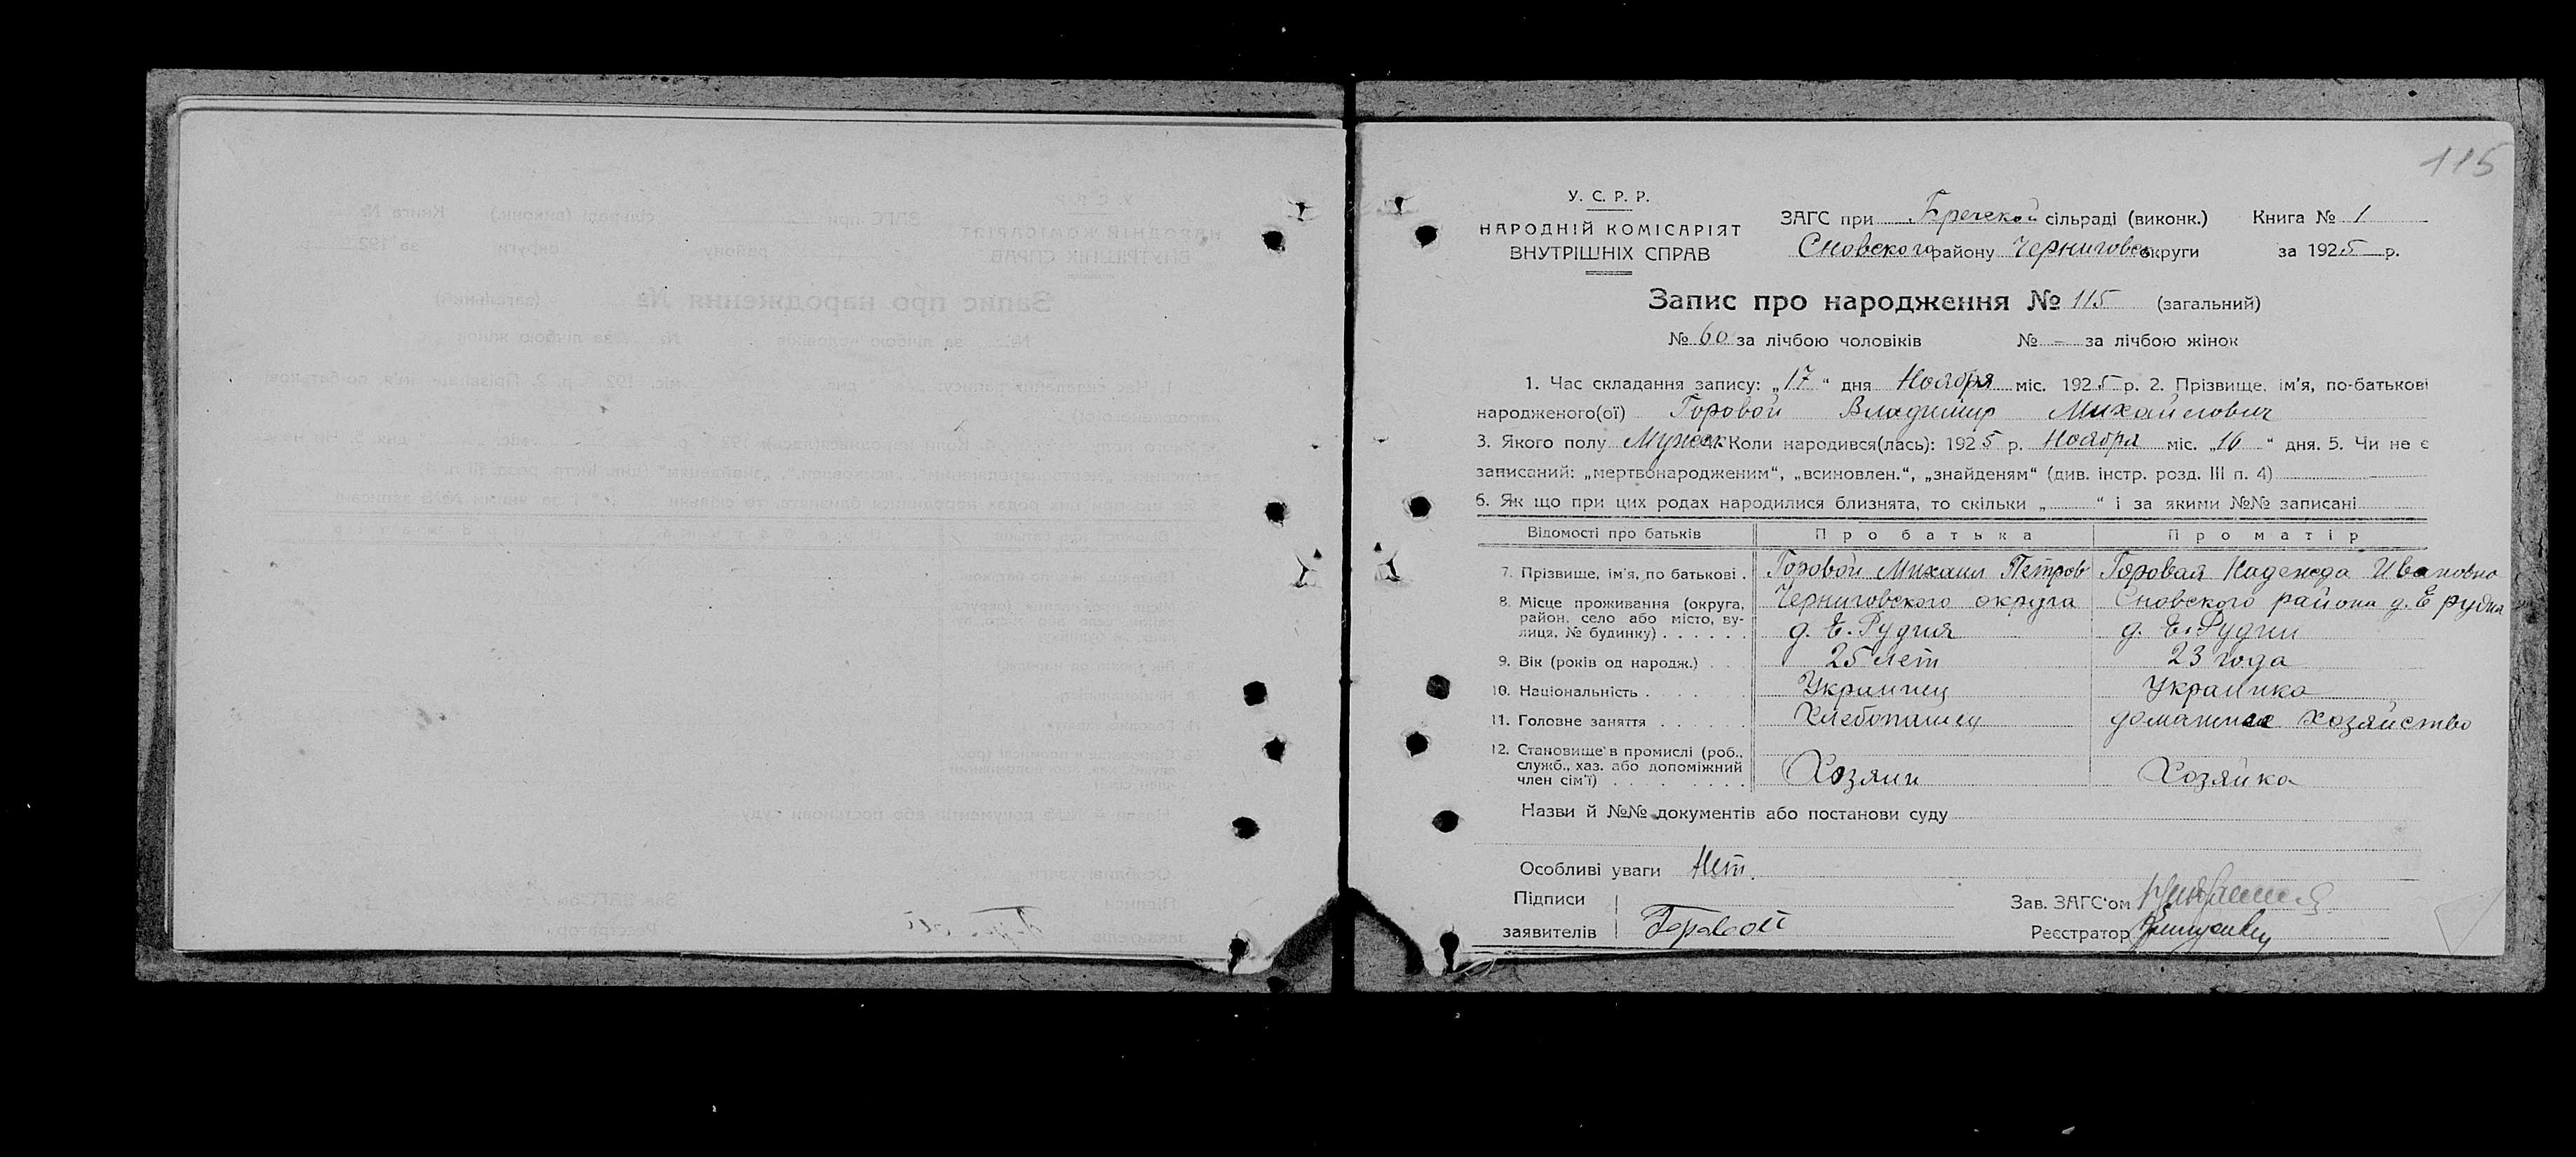 115
У. С. Р. Р.
НАРОДНІЙ КОМІСАРІЯТ
ВНУТРІШНІХ СПРАВ
ЗАГС при Бречской сільраді (виконк.) Книга № 1
Сновского району Черниговск округи за 1925 р.
Запис про народження № 115 (загальний)
№ 60 за лічбою чоловіків № – за лічбою жінок
1. Час складання запису: „17“ дня Ноября міс. 1925 р. 2. Прізвище, ім’я, по-батькові
народженого(ої) Горовой Владимир Михайлович
3. Якого полу Мужск 4. Коли народився(лась): 1925 р. Ноября міс. „16“ дня. 5. Чи не є
записаний: „мертвонародженим“, „всиновлен.“, „знайденям“ (див. інстр. розд. III п. 4)
6. Як що при цих родах народилися близнята, то скільки „ “ і за якими №№ записані
Відомості про батьків Про батька Про матір
7. Прізвище, ім’я, по батькові . Горовой Михаил Петров Горовая Надежда Ивановна
8. Місце проживання (округа, Черниговского округа Сновского района д. Е рудня
район, село або місто, ву-
лиця, № будинку) . . . . . . д. Е. Рудня д. Е. Рудни
9. Вік (років од народж.) . . . 25 лет 23 года
10. Національність . . . . . . Украинец Украинка
11. Головне заняття . . . . . . Хлебопашец домашнее хозяйство
12. Становище в промислі (роб.,
служб., хаз. або допоміжний
член сім’ї) . . . . . . . . Хозяин Хозяйка
Назви й №№ документів або постанови суду
Особливі уваги Нет.
Підписи Зав. ЗАГС‘ом
заявителів Горовой Реєстратор